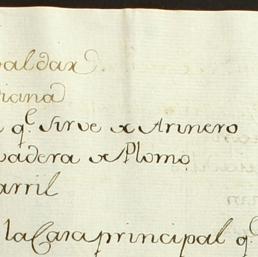 baldax.
iana
q.e sirve x Arinero
adera x Plomo
arril
la Casa principal q.e